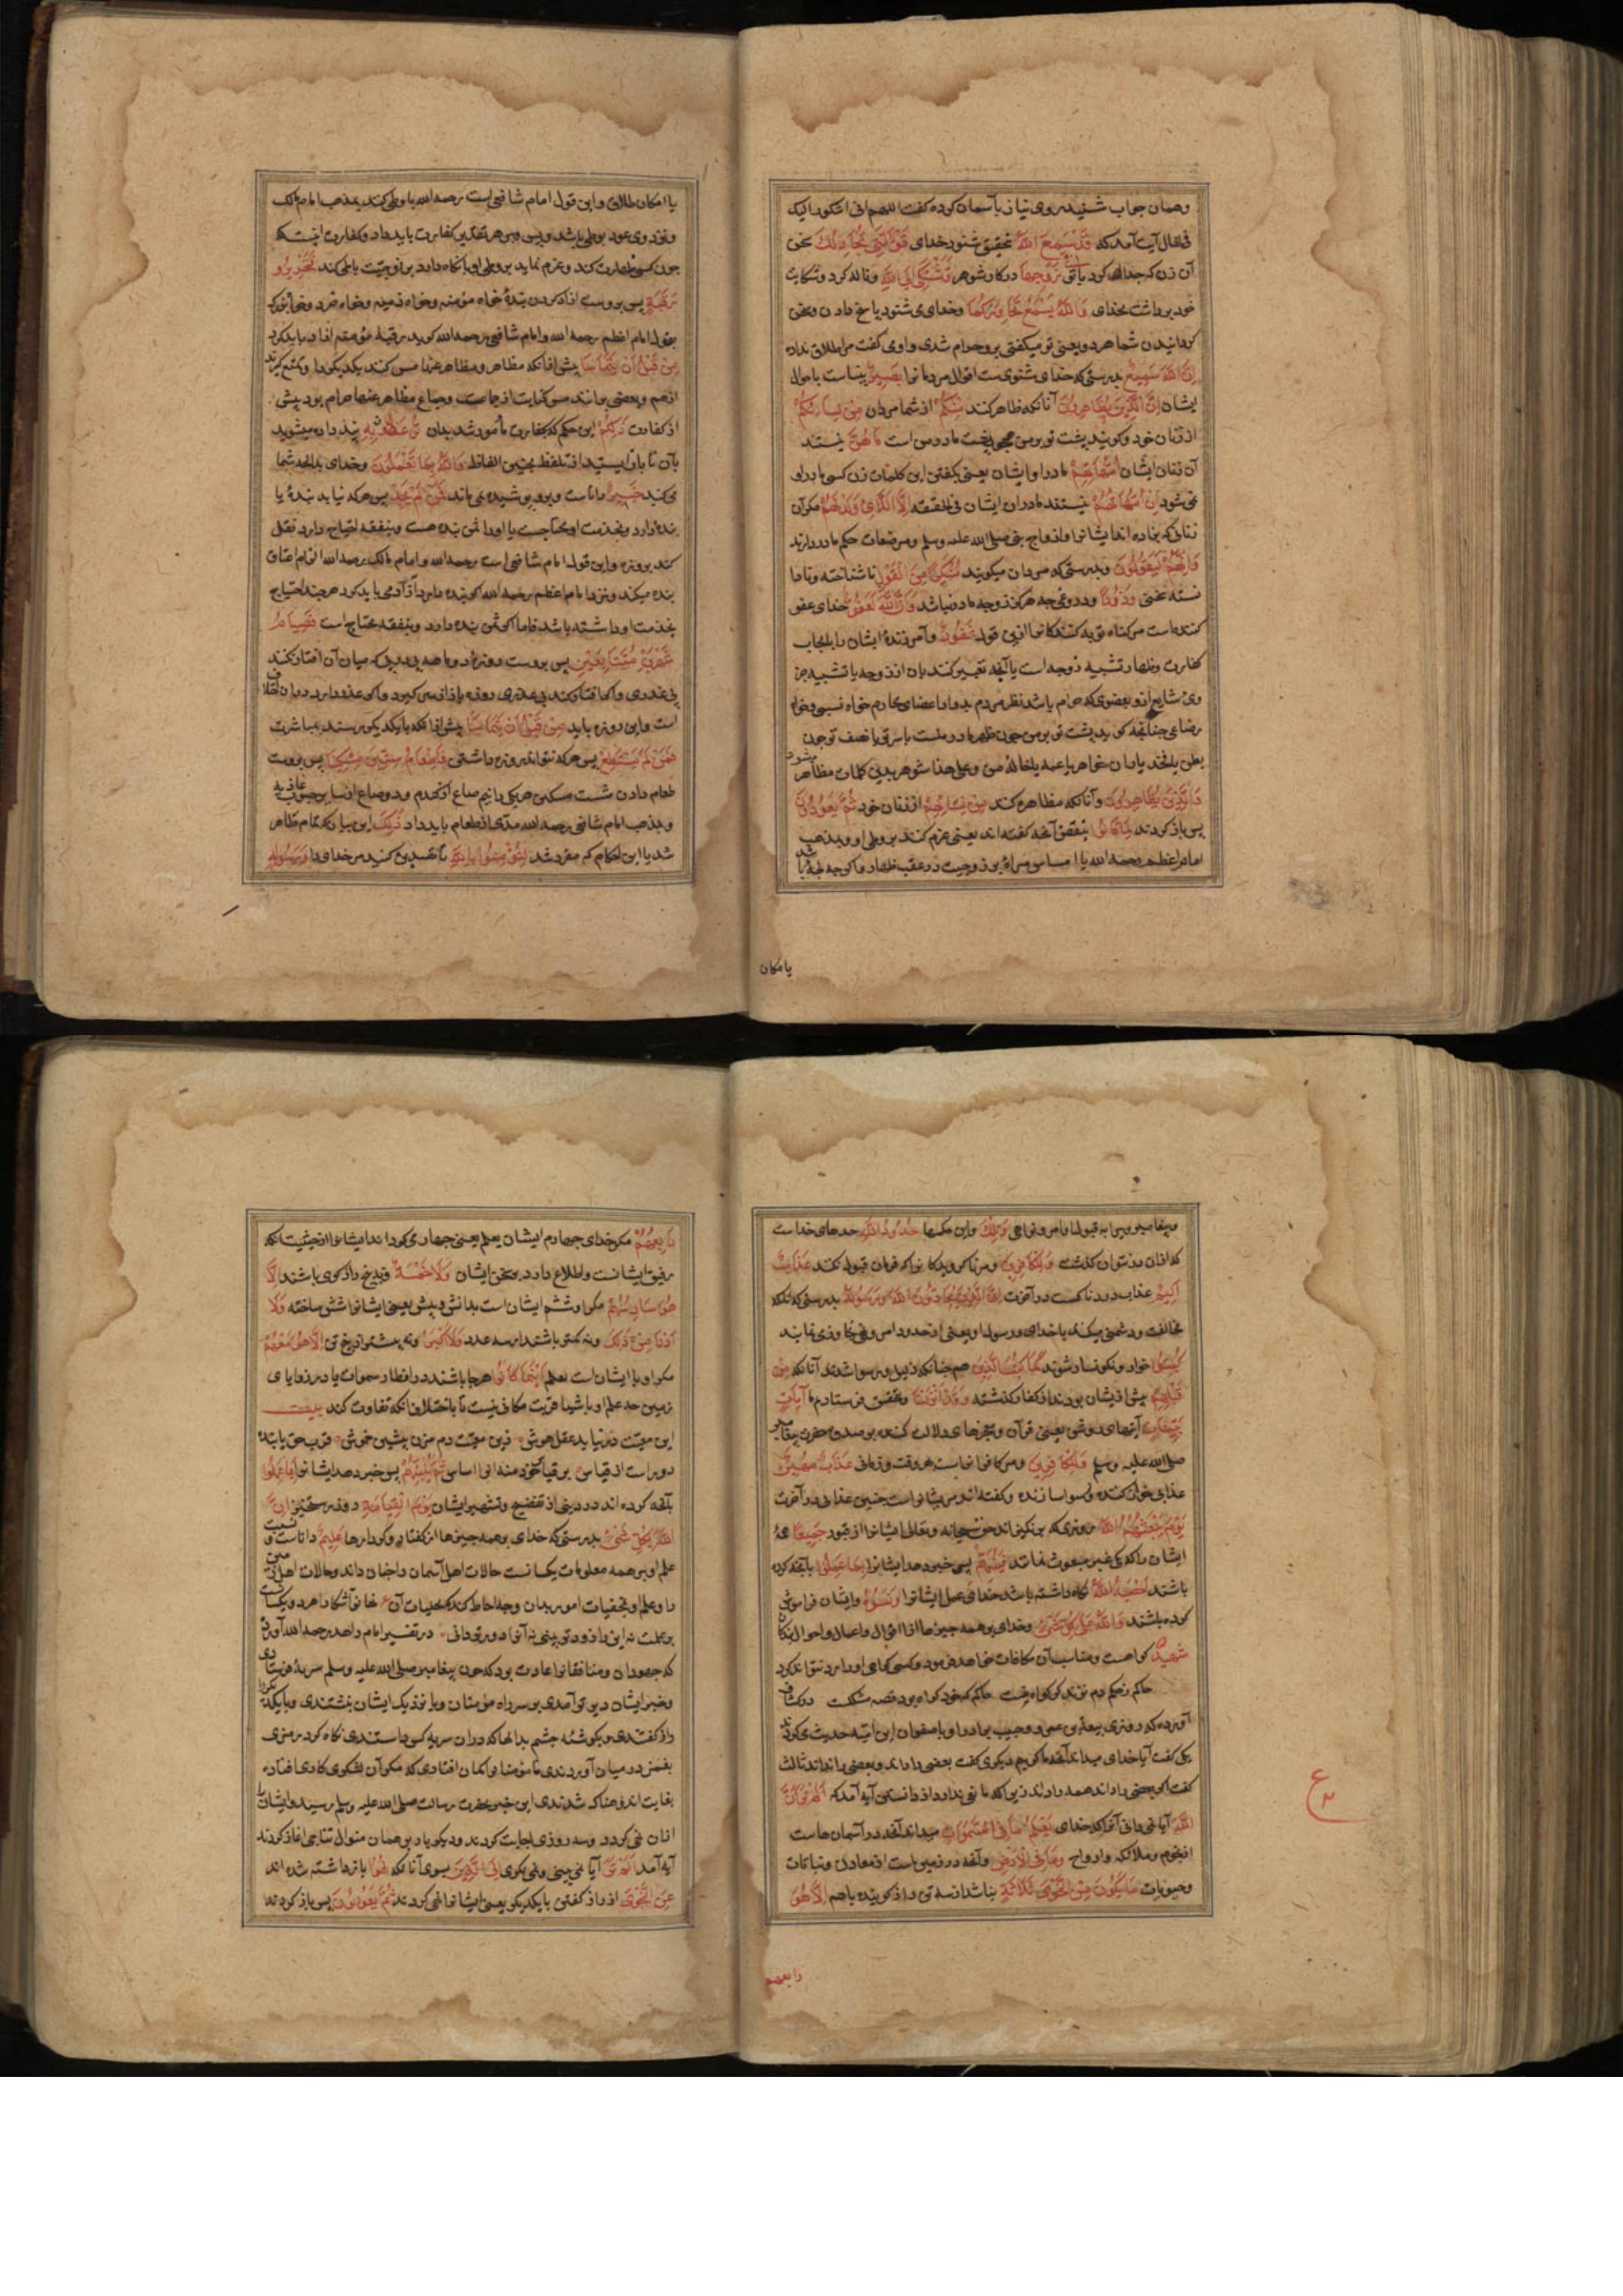 وهمان جواب شنید روی نیاز بآسمان کرده گفت اللهم انی اشکو الیک
فی الحال آیت آمد که قَدْ سَمِعَ اللهُ بتحقیق شنود خدای قَوْلَ الَّتِي تُجَادِلُكَ سخن
آن زن که جدال کرد با تو فِي زَوْجِهَا در کار شوهر وَتَشْتَكِي إِلَى اللهِ وناله کرد وشکایت
خود برداشت بخدای وَاللهُ يَسْمَعُ تَحَاوُرَكُمَا وخدای می شنود پاسخ دادن وسخن
کردانیدن شما هردو یعنی تو میکفتی برو حرام شدی واو می کفت مرا طلاق نداده
إِنَّ اللهَ سَمِيعٌ بدرستی که خدای شنوی ست اقوال مردمانرا بَصِيرٌ بینا ست باحوال
ایشان الَّذِينَ يُظَاهِرُونَ آنانکه ظاهر کنند مِنْكُمْ از شما مردان مِنْ نِسَائِهِمْ
از زنان خود وکویند پشت تو بر من همچو پشت مادر من است مَا هُنَّ نیستند
آن زنان ایشان أُمَّهَاتِهِمْ مادر او ایشان یعنی بکفتن این کلمات زن کسی مادر او
نمی شود إِنْ أُمَّهَاتُهُمْ نیستند مادران ایشان فی الحقیقة إِلَّا اللَّائِي وَلَدْنَهُمْ مکر آن
زنانی که بزاده اند ایشانرا وازواج نبی صلی الله علیه وسلم ومرضعات حکم مادر دارند
وَإِنَّهُمْ لَيَقُولُونَ وبدرستی که مردان میکویند مُنْكَرًا مِنَ الْقَوْلِ ناشناخته ونادا
نسته سخنی وَزُورًا ودروغی چه هرکز زوجه مادر نباشد وَإِنَّ اللهَ لَعَفُوٌّ خدای عفو
کننده است مر کناه توبه کنندکانرا ازین قول غَفُورٌ وآمرزنده ایشان را بایجاب
کفارت وظهار تشبیه زوجه است یا آنچه تعبیر کنند بان از زوجه یا تشبیه جز
وی شایع ازو بعضوی که حرام باشد نظر مردم بدو از اعضای محارم خواه نسبی وخواه
رضاعی چنانچه کوید پشت تو بر من چون ظهر مادر منست یا سر تو یا نصف تو چون
بطن یا فخذ مادران خواهر یا عمه یا خاله من وعلی هذا شوهر بدین کلمات مظاهر میشود
وَالَّذِينَ يُظَاهِرُونَ وآنانکه مظاهره کنند مِنْ نِسَائِهِمْ از زنان خود ثُمَّ يَعُودُونَ
پس باز کردند لِمَا قَالُوا بنقض آنچه کفته اند یعنی عزم کنند بر وطی او وبمذهب
امام اعظم رحمه الله یا امساس مراة بزوجیت در عقب ظهار واکرچه لحظه باشد
یا مکان
یا امکان طلاق واین قول امام شافعی است رحمه الله یا وطی کند بمذهب امام مالک
ونزد وی عود بوطی باشد وبس وبهر تقدیر کفارت باید داد وکفارت اینست که
چون کسی ظهارت کند وعزم نماید بر وطی او یا نکاه دارد بزوجیت یا وطی کند فَتَحْرِيرُ
رَقَبَةٍ پس بروست ازاد کردن بندۀ خواه مؤمنه وخواه ذمیه وخواه خرد وخواه بزرک
بقول امام اعظم رحمه الله وامام شافعی رحمه الله کوید رقبۀ مؤمنه ازاد باید کرد
مِنْ قَبْلِ أَنْ يَتَمَاسَّا پیش ازانکه مظاهر ومظاهر عنها مس کنند یکدیکر را وتمتع کیرند
ازهم وبعضی برانند مس کنایت از جماعست وجماع مظاهر عنها حرام بود پیش
از کفارت ذَلِكُمْ این حکم که بکفارت مأمور شدید بدان تُوعَظُونَ بِهِ پند داده میشوید
بآن تا باز ایستید از تلفظ بچنین الفاظ وَاللهُ بِمَا تَعْمَلُونَ وخدای بدانچه شما
می کنید خَبِيرٌ داناست وبرو پوشیده نمی ماند فَمَنْ لَمْ يَجِدْ پس هرکه نیابد بندۀ یا
بنده دارد وبخدمت او محتاجست یا اورا ثمن بنده هست وبنفقه احتیاج دارد نقل
کند بروزه واین قول امام شافعی است رحمه الله وامام مالک رحمه الله الزام اعتاق
بنده میکند ونزد امام اعظم رحمه الله کوینده دارد آزاد می باید کرد هرچند احتیاج
بخدمت او داشته باشد فاما اکر ثمن بنده دارد وبنفقه محتاج است فَصِيَامُ
شَهْرَيْنِ مُتَتَابِعَيْنِ پس بروست روزۀ دو ماهه پی در پی که میان آن افطار نکند
بی عذری واکر افطار کند بی عذری روزه باز از سر کیرد واکر عذر دارد دران خلاف
است واین روزه باید مِنْ قَبْلِ أَنْ يَتَمَاسَّا پیش ازانکه بایکدیکر برسند بمباشرت
فَمَنْ لَمْ يَسْتَطِعْ پس هرکه نتواند روزه داشتن فَإِطْعَامُ سِتِّينَ مِسْكِينًا پس بروست
طعام دادن شصت مسکین هریکی را نیم صاع از کندم ودو صاع از سایر حبوب
وبمذهب امام شافعی رحمه الله مدی از طعام باید داد ذَلِكَ این بیان که تمام ظاهر
شد یا این احکام که مقرر شد لِتُؤْمِنُوا بِاللهِ تا تصدیق کنید مر خدای را وَرَسُولِهِ
وپیغامبر ویرا به قبول اوامر ونواهی وَتِلْكَ واین حکمها حُدُودُ اللهِ حدهای خداست
که ازان نتوان کذشت وَلِلْكَافِرِينَ ومر ناکرویدکانرا که فرمان قبول نکنند عَذَابٌ
أَلِيمٌ عذاب دردناکست در آخرت إِنَّ الَّذِينَ يُحَادُّونَ اللهَ وَرَسُولَهُ بدرستی که انانکه
مخالفت ودشمنی میکنند با خدای ورسول او یعنی از حدود امر ونهی تجاوز می نمایند
كُبِتُوا خوار ونکونسار شوند كَمَا كُبِتَ الَّذِينَ هم چنانکه ذلیل ورسوا شدند آنانکه مِنْ
قَبْلِهِمْ پیش از ایشان بودند از کفار کذشته وَقَدْ أَنْزَلْنَا وبتحقیق فرستادیم ما آيَاتٍ
بَيِّنَاتٍ آیتهای روشن یعنی قرآن ومعجزهای دلالت کننده بر صدق حضرت پیغامبر
صلی الله علیه وسلم وَلِلْكَافِرِينَ ومر کافرانراست هر وقت وزمانی عَذَابٌ مُهِينٌ
عذابی خوار کننده ورسوا سازنده وکفته اند مر ایشانراست چنین عذابی در آخرت
يَوْمَ يَبْعَثُهُمُ اللهُ روزی که برانکیزاند حق سبحانه وتعالی ایشانرا از قبور جَمِيعًا همۀ
ایشان را که یکی غیر مبعوث نماند فَيُنَبِّئُهُمْ پس خبر دهد ایشانرا بِمَا عَمِلُوا بآنچه کرده
باشند أَحْصَاهُ اللهُ نکاه داشته باشد خدای عمل ایشانرا وَنَسُوهُ وایشان فراموش
کرده باشند وَاللهُ عَلَى كُلِّ شَيْءٍ وخدای بر همه چیزها از اقوال واعمال واحوال بندکان
شَهِيدٌ کواهست ومناسب آن مکافات خواهد فرمود وکسی کواهی اورا رد نتواند کرد
حاکم که خود کواه بود قصه مشکلست درکشاف
آورده که روزی ربیعة بن عمرو وحبیب برادر او با صفوان ابن امیه حدیث می کردند
یکی کفت آیا خدای میداند آنچه ما کوییم دیکری کفت بعضی را داند وبعضی را نداند ثالث
کفت اکر بعضی را داند همه را داند زیرا که مانعی ندارد از دانستن آیه آمد که أَلَمْ تَرَ أَنَّ
اللهَ آیا نمی دانی آنرا که خدای يَعْلَمُ مَا فِي السَّمَوَاتِ میداند آنچه در آسمان هاست
از نجوم وملائکه وارواح وَمَا فِي الْأَرْضِ وآنچه در زمین است از معادن ونباتات
وحیوانات مَا يَكُونُ مِنْ نَجْوَى ثَلَاثَةٍ نباشد از سه تن راز کوینده باهم إِلَّا هُوَ
رابعهم
رَابِعُهُمْ مکر خدای چهارم ایشان بعلم یعنی چهار می کرداند ایشانرا از حیثیت انکه
رفیق ایشانست واطلاع دارد بر سخن ایشان وَلَا خَمْسَةٍ ونه پنج راز کوی باشند إِلَّا
هُوَ سَادِسُهُمْ مکر او ششم ایشان است بدانش وبینش یعنی ایشانرا شش ساخته وَلَا
أَدْنَى مِنْ ذَلِكَ ونه کمتر باشند از سه عدد وَلَا أَكْثَرَ ونه بیشتر از پنج تن إِلَّا هُوَ مَعَهُمْ
مکر او با ایشان است بعلم أَيْنَمَا كَانُوا هرجا باشند در اقطار سموات یا در زوایای
زمین چه علم او باشیا قربت مکانی نیست تا باختلاف امکنه تفاوت کند بیت
این معیت در نیابد عقل وهوش زین معیت دم مزن بنشین خموش قرب حق با بنده
دور است از قیاس بر قیاس خود منه انرا اساس ثُمَّ يُنَبِّئُهُمْ پس خبر دهد ایشانرا بِمَا عَمِلُوا
بآنچه کرده اند در دنیا از تفضیح وتشهیر ایشان يَوْمَ الْقِيَامَةِ در روز رستخیز إِنَّ
اللهَ بِكُلِّ شَيْءٍ بدرستی که خدای بهمه چیزها از کفتار وکردارها عَلِيمٌ داناست ونسبت
علم او بر همه معلومات یکسانست حالات اهل آسمان را چنان داند وحالات اهل زمین
را وعلم او بخفیات امور بدان وجه احاطه کند که بجلیات آن نهان وآشکارا هر دو یکسانست
بر علمت نه این را زودتر بینی نه آنرا دورتر دانی در تفسیر امام زاهد رحمه الله آورده
که جهودان ومنافقانرا عادت بود که چون پیغامبر صلی الله علیه وسلم سریه فرستادی
وخبر ایشان دیرتر آمدی بر سر راه مؤمنان ویا نزدیک ایشان بنشستندی وبا یکدیکر
راز کفتندی وبکوشۀ چشم بدانها که دران سریه کسی داشتندی نکاه کردندی
بغمز در میان آوردندی تا مؤمنانرا کمان افتادی که مکر آن لشکر را کاری افتاده
بغایت اندوهناک شدندی این خبر بحضرت رسالت صلی الله علیه وسلم رسید وایشانرا
ازان نهی کرد دو سه روزی اجابت کردند ودیکر بار بر همان منوال تناجی اغاز کردند
آیه آمد أَلَمْ تَرَ آیا نمی بینی ونمی نکری إِلَى الَّذِينَ بسوی آنانکه نُهُوا باز داشته شده اند
عَنِ النَّجْوَى از راز کفتن بایکدیکر یعنی ایشانرا نهی کردند ثُمَّ يَعُودُونَ پس باز کردند